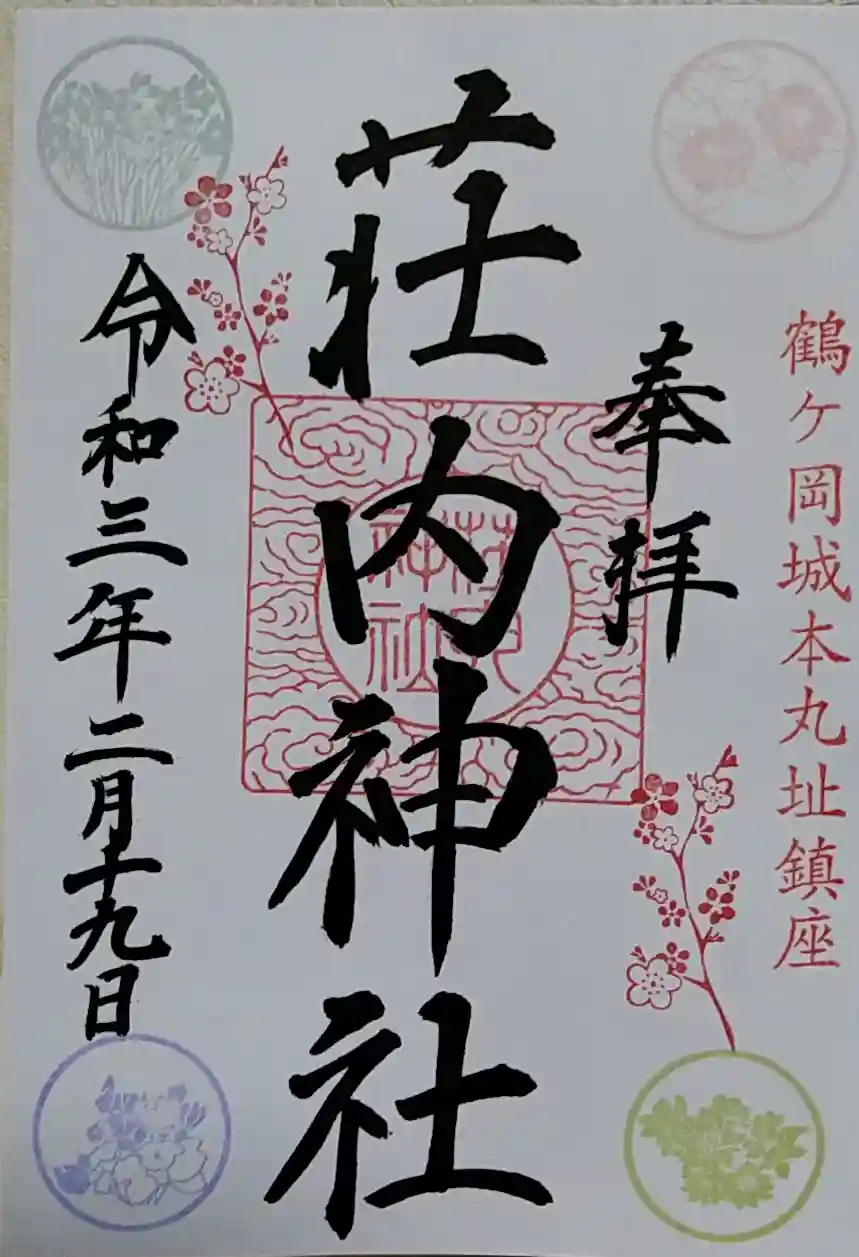 鶴ケ岡城本丸址鎮座
奉拝
荘内神社
荘内
神社
令和三年二月十九日